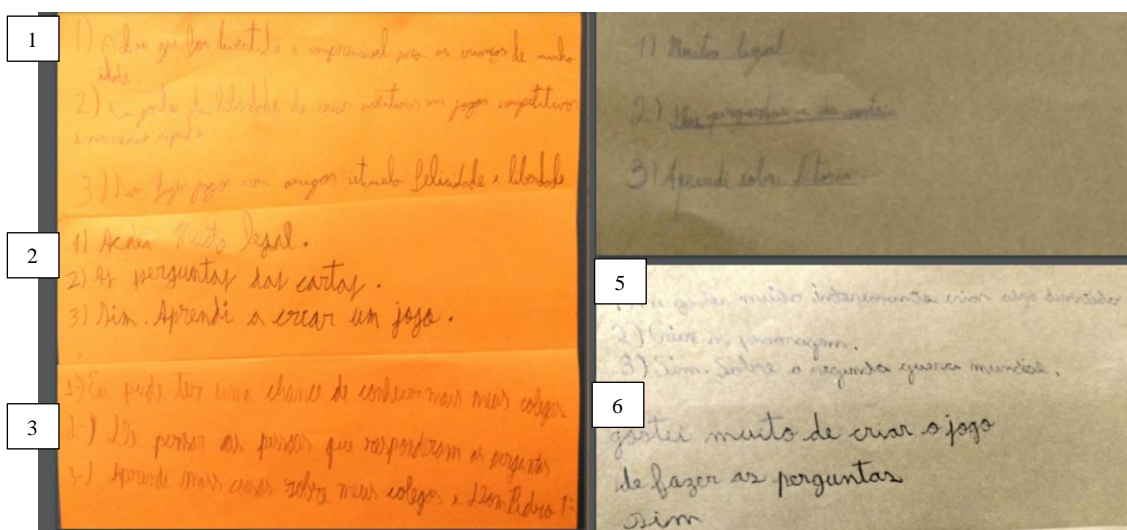 1
1) Achei que foi divertido e compreensivel para as crianças de minha
idade.
2) Eu gostei da liberdade de criar aventuras em jogos competitivos
e
3) Sim, fazer jogos com amigos felicidade e liberdade
2
1) Achei Muito legal.
2) As perguntas das cartas.
3) Sim. Aprendi a criar um jogo.
3
1-) Eu pude ter uma chance de conhecer mais meus colegas
2-) De pensar as pessoas que responderam as perguntas
3-) Aprendi mais coisas sobre meus colegas e Dom Pedro 1º
1) Muito legal
2) Das perguntas e da
3) Aprendi sobre
5
muito interessante criar algo divertido
2) Criar um personagem.
3) Sim. Sobre a segunda guerra mundial.
6
gostei muito de criar o jogo
de fazer as perguntas
sim